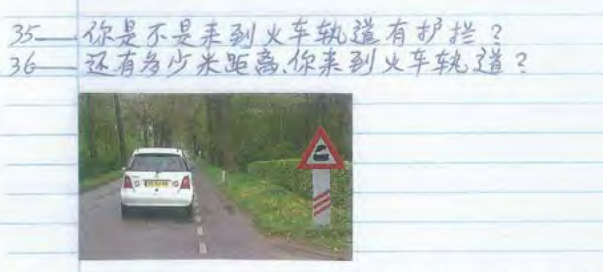 35—你是不是来到火车轨道有护拦？
36—还有多少米距离、你来到火车轨道？